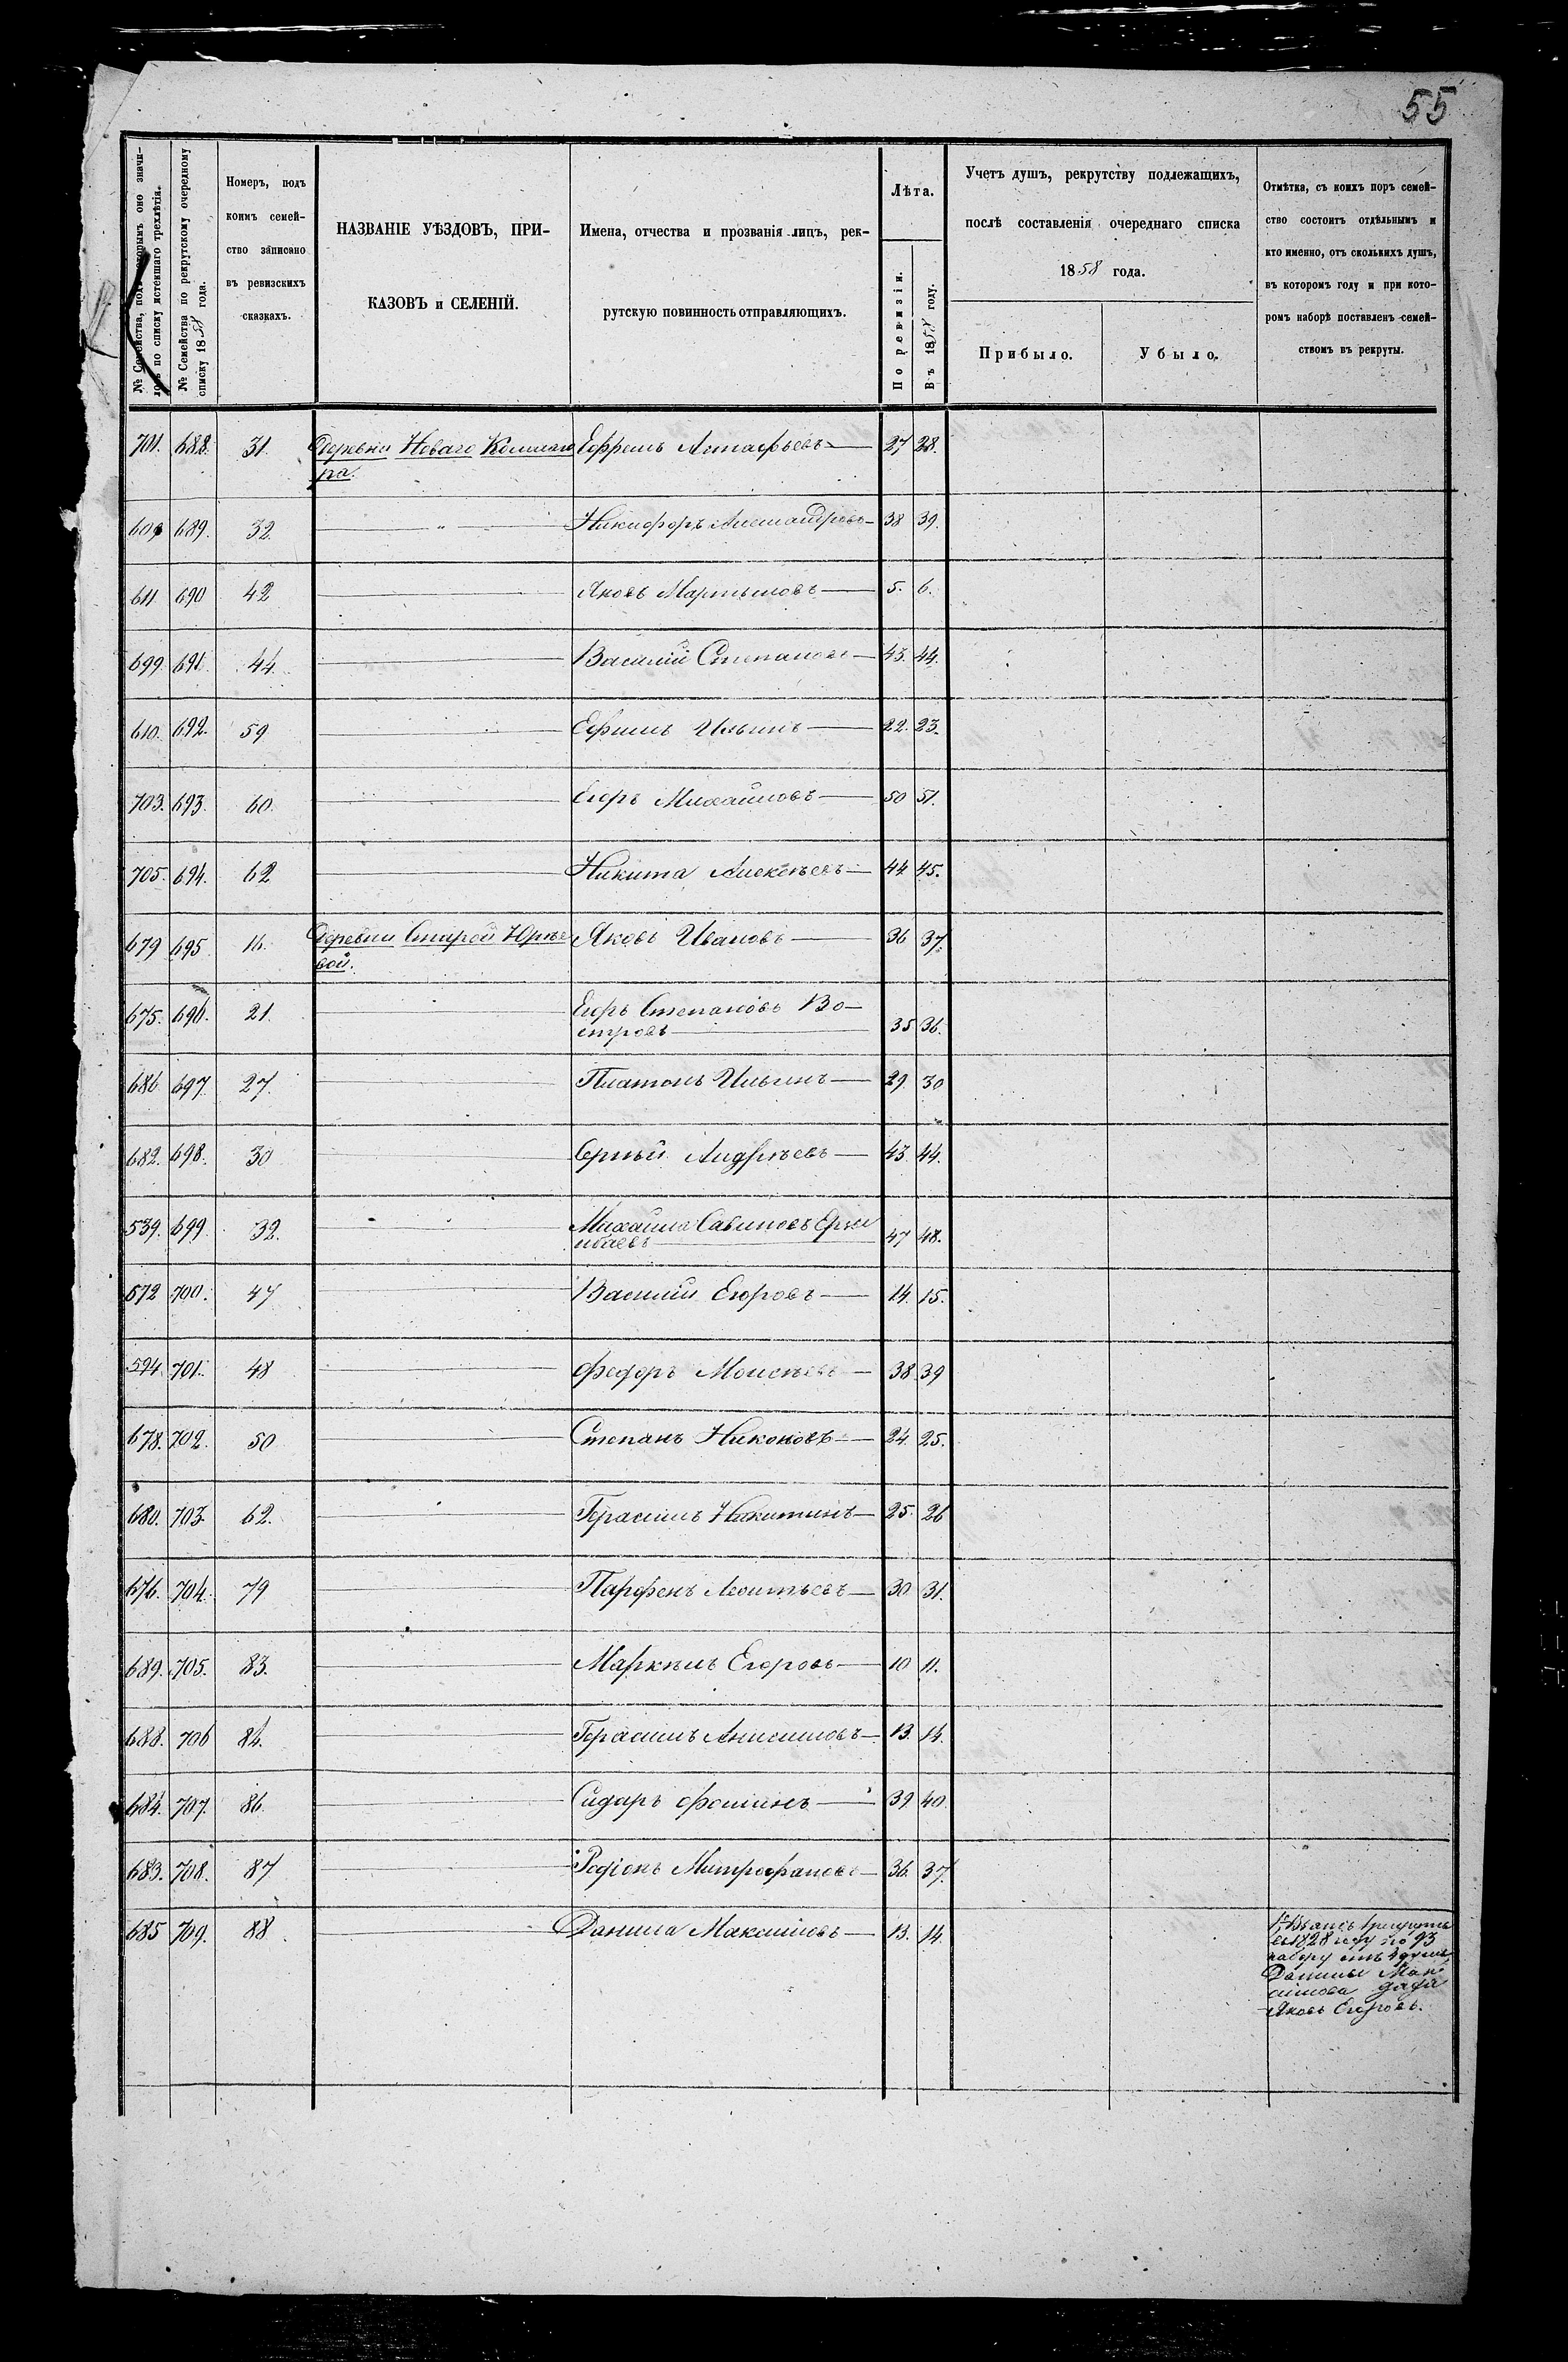 55
№ Семейства, подъ которымъ оно значи-
лось по списку истекшаго трехлѣтія.
№ Семейства по рекрутскому очередному
списку 1858 года.
Номеръ, подъ
коимъ семей-
ство записано
въ ревизскихъ
сказкахъ.
НАЗВАНІЕ УѢЗДОВЪ, ПРИ-
КАЗОВЪ и СЕЛЕНІЙ.
Имена, отчества и прозванія лицъ, рек-
рутскую повинность отправляющихъ.
Лѣта.
По ревизіи.
Въ 1858 году.
Учетъ душъ, рекрутству подлежащихъ,
послѣ составленія очереднаго списка
1858 года.
Прибыло.
Убыло.
Отмѣтка, съ коихъ поръ семей-
ство состоитъ отдѣльнымъ и
кто именно, отъ сколькихъ душъ,
въ которомъ году и при кото-
ромъ наборѣ поставленъ семей-
ствомъ въ рекруты.
701. 688. 31. Деревни Новаго Ефремъ Астафьевъ 27 28.
ра.
609 689. 32. Никифоръ Александровъ 38 39.
611 690 42 Яковъ Мартыновъ 5. 6.
699. 691. 44. Василій Степановъ 43. 44.
610. 692. 59 Ефимъ Ильинъ 22. 23.
703. 693. 60. Егоръ Михайловъ 50 51.
705. 694. 62 Никита Алексѣевъ 44 45.
679 695 16. Деревни Старой Юрье- Яковъ Ивановъ 36 37.
вой.
675. 696. 21. Егоръ Степановъ Во-
стровъ 35 36.
686 697 27. Платонъ Ильинъ 29 30
682. 698. 30 Сергѣй Андрѣевъ 43. 44.
539. 699. 32. Михайла Савиновъ
47 48.
572 700. 47 Василій Егоровъ 14. 15.
594. 701. 48 Федоръ Моисѣевъ 38. 39
678. 702. 50 Степанъ Никоновъ 24. 25.
680. 703. 62. Герасимъ Никитинъ 25. 26
676. 704. 79 Парфенъ Леонтьевъ 30 31.
689. 705. 83. Маркелъ Егоровъ 10 11.
688. 706 84. Герасимъ Анисимовъ 13. 14.
684. 707. 86. Сидаръ Фоминъ 39. 40.
683. 708. 87 Родіонъ Митрофановъ 36. 37.
685 709. 88 Данила Максимовъ 13. 14.
въ 1828 году по 93
набору отъ 4 душъ,
Данилы Мак-
симова дядя
Яковъ Егоровъ.